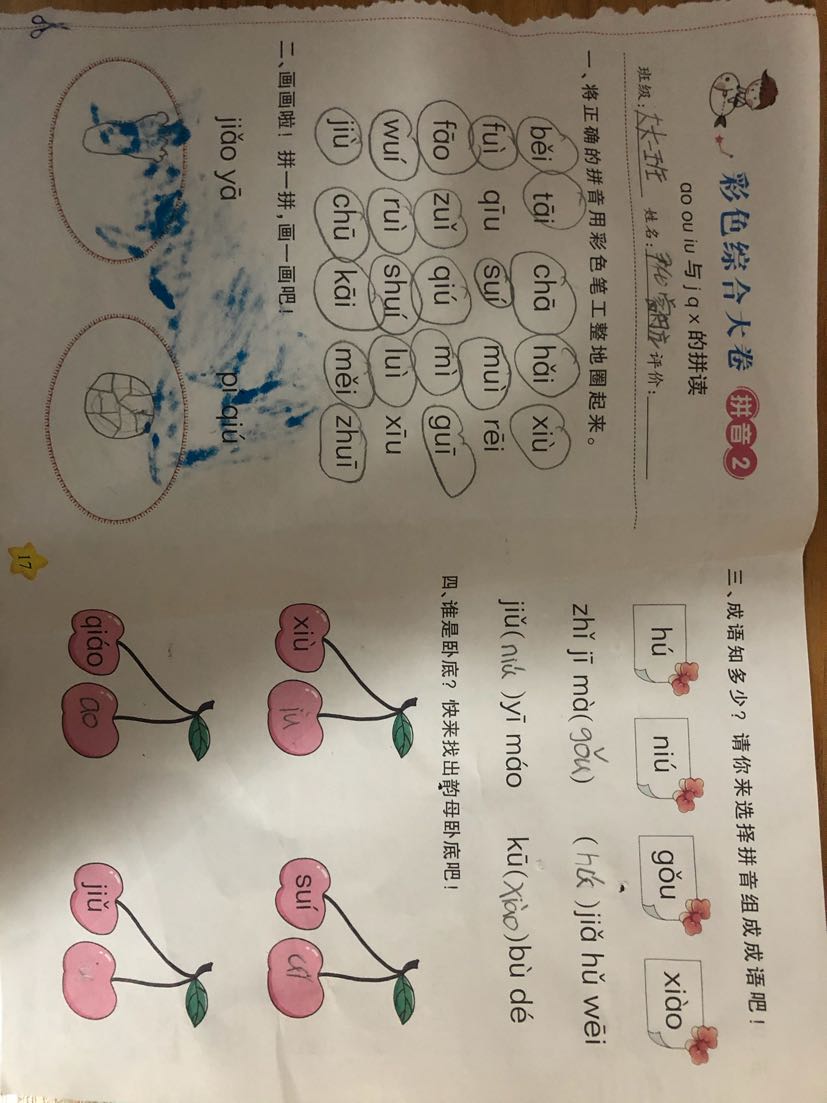 彩色综合大卷 拼音 2
ao ou iu 与 j q x 的拼读
班级: 姓名: 评价:
一、将正确的拼音用彩色笔工整地圈起来。
běi tāi chā hǎi xiù
fuì qīu suí muì rēi
fāo zuǐ qiú mì guī
wuí ruì shuí luì xīu
jiù chū kāi měi zhuī
二、画画啦！拼一拼,画一画吧！
jiǎo yā pí qiú
三、成语知多少？请你来选择拼音组成成语吧！
hú niú gǒu xiào
zhǐ jī mà(gǒu) (hú)jiǎ hǔ wēi
jiǔ(niú)yī máo kū(xiào)bù dé
四、谁是卧底？快来找出韵母卧底吧！
xiù iu suí uí
qiáo ao jiǔ
17